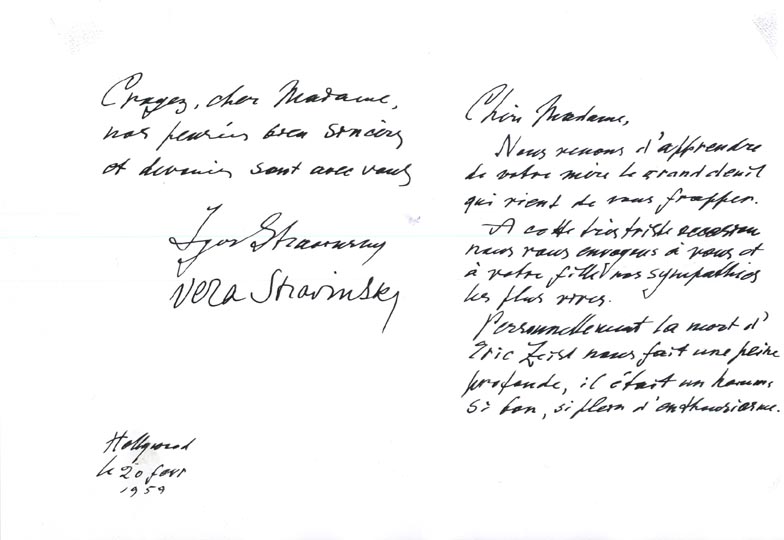 Chère Madame,
Nous venons d'apprendre
de votre mère le grand deuil
qui vient de vous frapper.
A cette très triste occasion
nous vous envoyons à vous et
à votre fille nos sympathies
les plus vives.
Personnellement la mort d'
Eric Zeisl nous fait une peine
profonde, il était un homme
si bon, si plein d'enthousiasme.
Croyez, cher Madame,
nos pensées bien sincères
et sont avec vous
Igor Stravinsky
Vera Stravinsky
Hollywood
le 20 fevr
1959